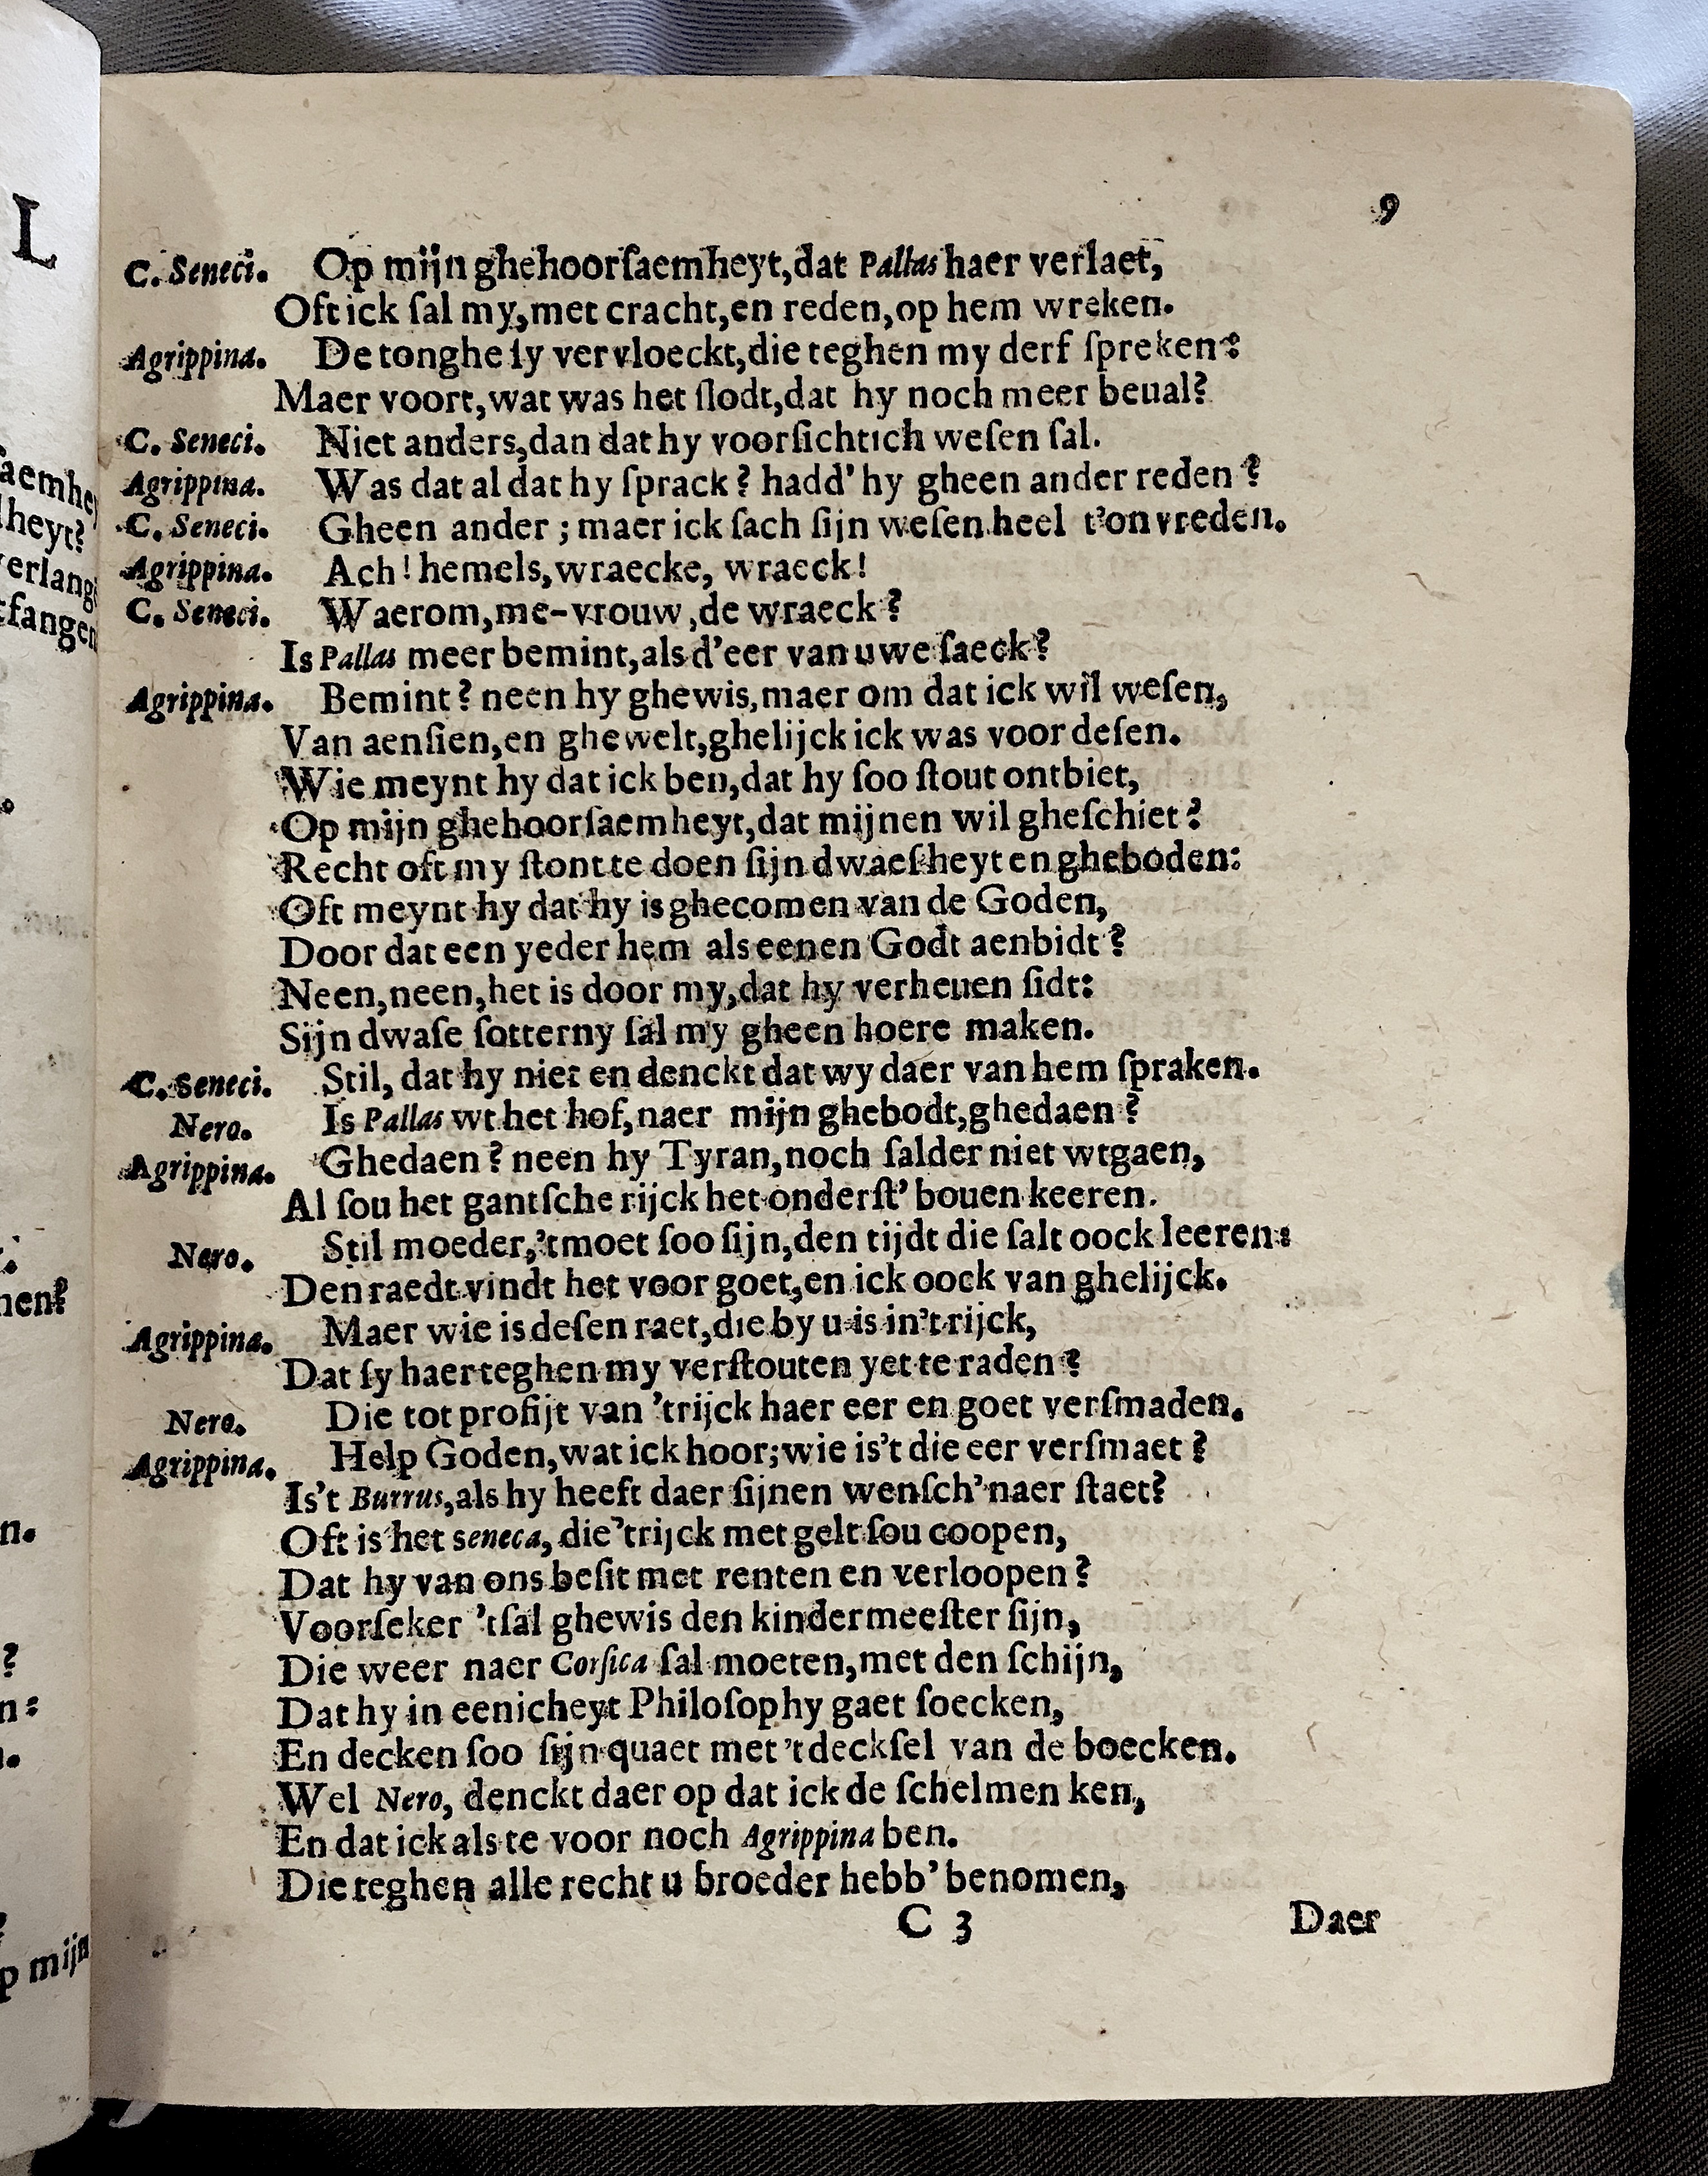 9
C. Seneci. Op mijn ghehoorſaemheyt,dat Pallas haer verlaet,
Oft ick ſal my,met cracht,en reden,op hem wreken.
Agrippina. De tonghe ſy vervloeckt,die teghen my derf ſpreken:
Maer voort,wat was het ſlodt,dat hy noch meer beual?
C. Seneci. Niet anders,dan dat hy voorſichtich weſen ſal.
Agrippina. Was dat al dat hy ſprack? hadd' hy gheen ander reden?
C. Seneci. Gheen ander; maer ick ſach ſijn weſen heel t'onvreden.
Agrippina. Ach! hemels,wraecke, wraeck!
C. Seneci. Waerom,me-vrouw,de wraeck?
Is Pallas meer bemint,als d'eer van uwe ſaeck?
Agrippina. Bemint? neen hy ghewis,maer om dat ick wil weſen,
Van aenſien,en ghewelt,ghelijck ick was voor deſen.
Wie meynt hy dat ick ben,dat hy ſoo ſtout ontbiet,
Op mijn ghehoorſaemheyt,dat mijnen wil gheſchiet?
Recht oft my ſtont te doen ſijn dwaeſheyt en gheboden:
Oft meynt hy dat hy is ghecomen van de Goden,
Door dat een yeder hem als eenen Godt aenbidt?
Neen,neen,het is door my,dat hy verheuen ſidt:
Sijn dwaſe ſotterny ſal my gheen hoere maken.
C. Seneci. Stil, dat hy niet en denckt dat wy daer van hem ſpraken.
Nero. Is Pallas wt het hof,naer mijn ghebodt,ghedaen?
Agrippina. Ghedaen? neen hy Tyran,noch ſalder niet wtgaen,
Al ſou het gantſche rijck het onderſt' bouen keeren.
Nero. Stil moeder,'tmoet ſoo ſijn,den tijdt die ſalt oock leeren:
Den raedt vindt het voor goet,en ick oock van ghelijck.
Agrippina. Maer wie is deſen raet,die by u is in't rijck,
Dat ſy haer teghen my verſtouten yet te raden?
Nero. Die tot profijt van 'trijck haer eer en goet verſmaden.
Agrippina. Help Goden,wat ick hoor;wie is't die eer verſmaet?
Is't Burrus,als hy heeft daer ſijnen wenſch' naer ſtaet?
Oft is het Seneca, die 'trijck met gelt ſou coopen,
Dat hy van ons beſit met renten en verloopen?
Voorſeker 'tſal ghewis den kindermeeſter ſijn,
Die weer naer Corſica ſal moeten,met den ſchijn,
Dat hy in eenicheyt Philoſophy gaet ſoecken,
En decken ſoo ſijn quaet met 't deckſel van de boecken.
Wel Nero, denckt daer op dat ick de ſchelmen ken,
En dat ick als te voor noch Agrippina ben.
Die teghen alle recht u broeder hebb' benomen,
C 3 Daer